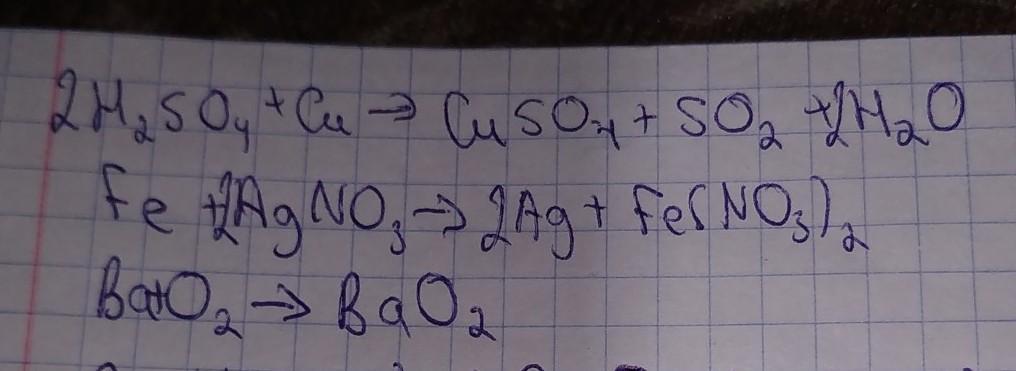 2H₂SO₄ + Cu → CuSO₄ + SO₂ + 2H₂O
Fe + 2AgNO₃ → 2Ag + Fe(NO₃)₂
Ba + O₂ → BaO₂